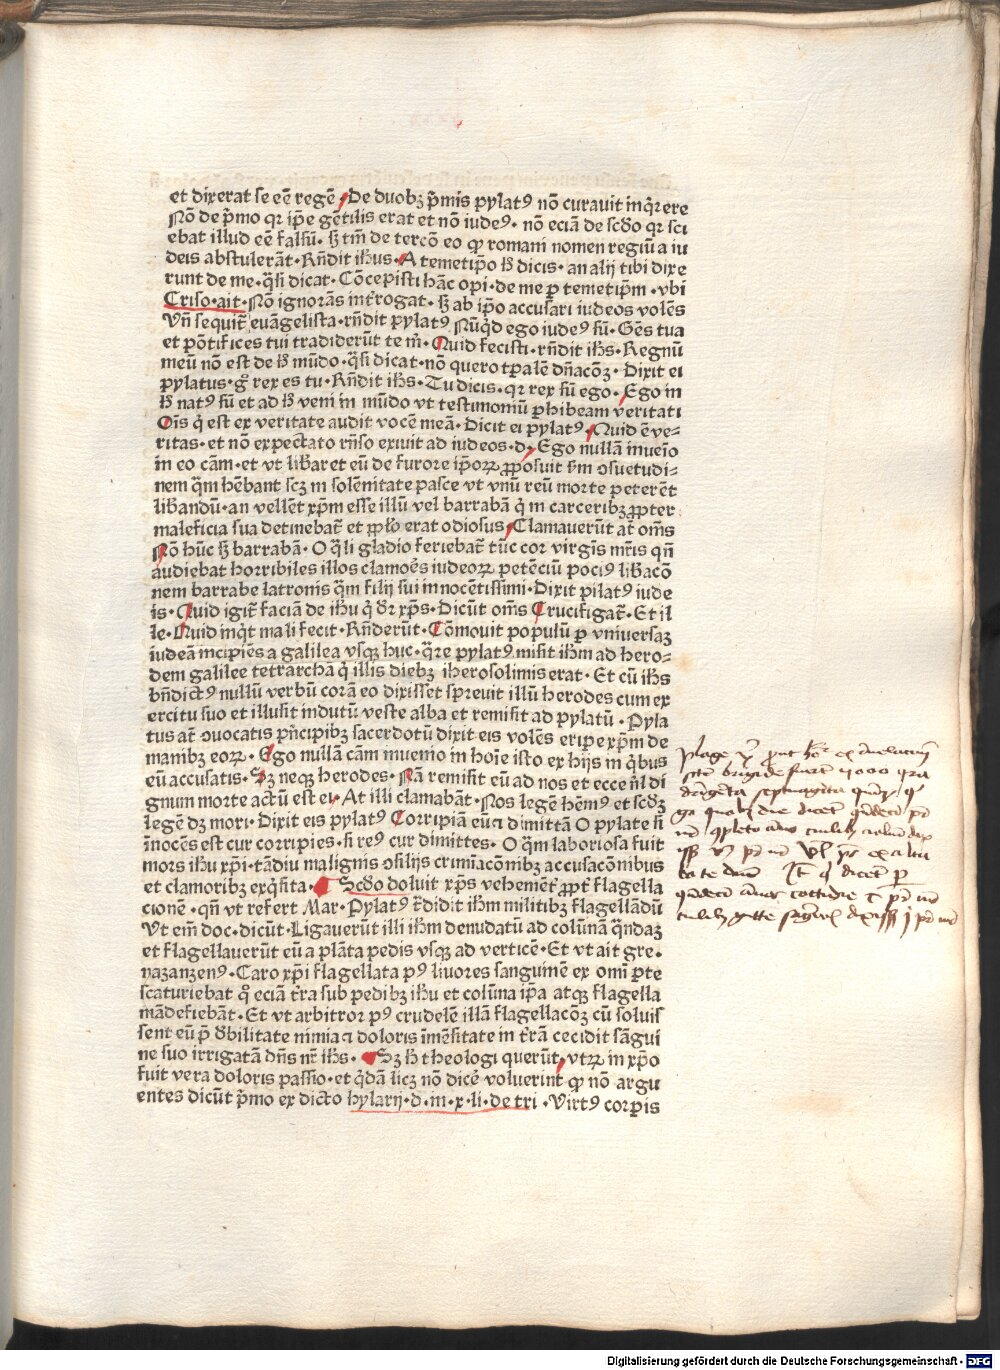 et dixerat se eē regē · De duobꝫ p̄mis pylatꝰ nō curavit inqͥrere
Nō de p̄mo qꝛ ip̄e gētilis erat et nō iudeꝰ · nō eciā de scd̄o qꝛ sci
ebat illud eē falsū · sꝫ tm̄ de tercō eo ꝙ romani nomen regiū a iu
deis abstulerāt · Rn̄dit ih̄us · A temetip̄o h̄ dicis · an alij tibi dixe
runt de me · qͣsi dicat · Cōcepisti hāc opi · de me ꝑ temetip̄m · vbi
Criso · ait · Nō ignorās int̄rogat · sꝫ ab ip̄o accusari iudeos volēs
Vn̄ sequit̄ euāgelista · rn̄dit pylatꝰ Nūqͥd ego iudeꝰ sū · Gēs tua
et pōtifices tui tradiderūt te m̄ · Quid fecisti · rn̄dit ih̄s · Regnū
meū nō est de h̄ mūdo · qͣsi dicat · nō quero tꝑalē dn̄acōꝫ · Dixit ei
pylatus · gͦ rex es tu · Rn̄dit ih̄s · Tu dicis · qꝛ rex sū ego · Ego in
h̄ natꝰ sū et ad h̄ veni in mūdo vt testimoniū ꝑhibeam veritati
Oīs qͥ est ex veritate audit vocē meā · Dicit ei pylatꝰ · Quid ē ve⸗
ritas · et nō expectato rn̄so exiuit ad iudeos · d · Ego nullā inueīo
in eo cām · et vt lib̄aret eū de furore ip̄oꝝ ꝓposuit s̄m ɔsuetudi⸗
nem qͣm hēbant scꝫ in solēnitate pasce vt vnū reū morte peterēt
lib̄andū · an vellēt xp̄m esse illū vel barrabā qͥ in carceribꝫ ꝓpter
maleficia sua detinebat̄ et ꝓpt̄ erat odiosus · Clamauerūt at̄ om̄s
Nō hūc sꝫ barrabā · O qͣli gladio feriebat̄ tūc cor virgīs mr̄is qn̄
audiebat horribiles illos clamoēs iudeoꝝ petēciū pociꝰ lib̄acō
nem barrabe latronis qͣm filij sui innocētissimi · Dixit pilatꝰ iude
is · Quid igit̄ faciā de ih̄u qͥ dr̄ xp̄s · Dicūt om̄s Crucifigat̄ · Et il
le · Quid inqͥt mali fecit · Rn̄derūt · Cōmouit populū ꝑ vniversaꝫ
iudeā incipiēs a galilea vsqꝫ huc · qͣre pylatꝰ misit ih̄m ad hero⸗
dem galilee tetrarchā qͥ illis diebꝫ iherosolimis erat · Et cū ih̄s
bn̄dictꝰ nullū verbū corā eo dixisset spreuit illū herodes cum ex
ercitu suo et illusit indutū veste alba et remisit ad pylatū · Pyla
tus at̄ ɔuocatis pn̄cipibꝫ sacerdotū dixit eis volēs eripe xp̄m de
manibꝫ eoꝝ · Ego nullā cām inuenio in hoīe isto ex hijs in qͥbus
eū accusatis · Sꝫ neqꝫ herodes · Nā remisit eū ad nos et ecce nl̄ di
gnum morte actū est ei · At illi clamabāt · Nos legē hēmꝰ et scd̄ꝫ
legē dꝫ mori · Dixit eis pylatꝰ Corripiā eū ⁊ dimittā O pylate si
īnocēs est cur corripies · si reꝰ cur dimittes · O qͣm laboriosa fuit
mors ih̄u xp̄i · tādiu malignis ɔsilijs crimīacōibꝫ accusacōnibus
et clamoribꝫ exqͥsita · Scd̄o doluit xp̄s vehemēt̄ ꝓpt̄ flagella
cionē · qn̄ vt refert Mar · Pylatꝰ t̄didit ih̄m militibꝫ flagellādū
Vt em̄ doc · dicūt · Ligauerūt illi ih̄m denudatū ad colūnā qͣndaꝫ
et flagellauerūt eū a plāta pedis vsqꝫ ad verticē · Et vt ait gre ·
nazanzenꝰ · Caro xp̄i flagellata pꝰ liuores sanguinē ex om̄i ꝑte
scaturiebat qͦ eciā t̄ra sub pedibꝫ ih̄u et colūna ip̄a atqꝫ flagella
mādefiebāt · Et vt arbitror pꝰ crudelē illā flagellacōꝫ cū soluis
sent eū p̄ debilitate nimia ⁊ doloris īmēsitate in t̄rā cecidit sāgui
ne suo irrigatā dn̄s nr̄ ih̄s · Sꝫ h̄ theologi querūt vtꝝ in xp̄o
fuit vera doloris passio · et qͥdā licꝫ nō dicē voluerint ꝙ nō argu
entes dicūt p̄mo ex dicto hylarij · d · m · x · li · de tri · Virtꝰ corꝑis
Digitalisierung gefördert durch die Deutsche Forschungsgemeinschaft - DFG